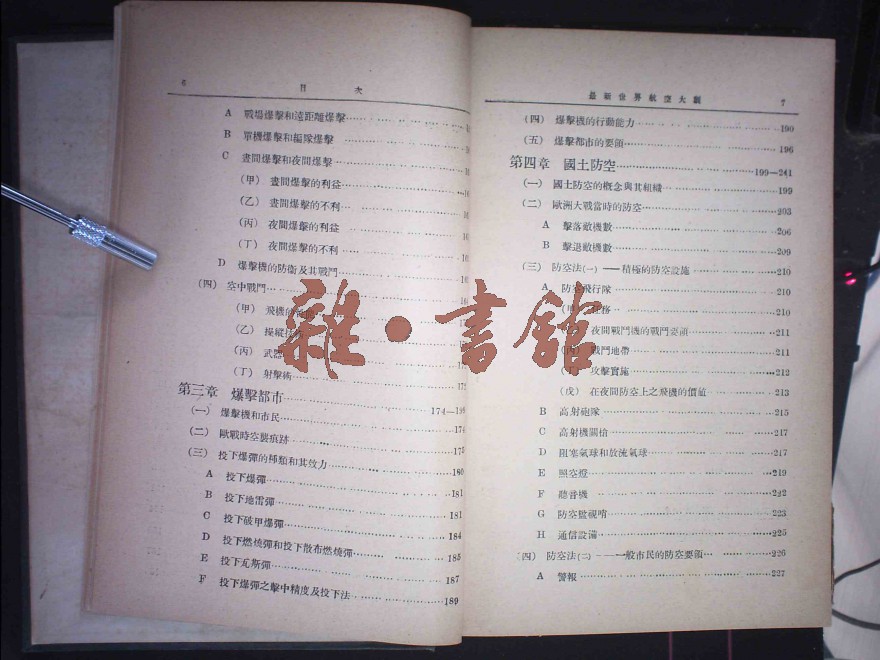 6 目次
A 戰場爆擊和遠距離爆擊
B 單機爆擊和編隊爆擊
C 晝間爆擊和夜間爆擊
(甲) 晝間爆擊的利益
(乙) 晝間爆擊的不利
(丙) 夜間爆擊的利益
(丁) 夜間爆擊的不利
D 爆擊機的防衛及其戰鬥
(四) 空中戰鬥
(甲) 飛機的
(乙) 操縱技
(丙) 武器
(丁) 射擊術
第三章 爆擊都市 174—198
(一) 爆擊機和市民 174
(二) 歐戰時空襲痕跡 175
(三) 投下爆彈的種類和其效力 180
A 投下爆彈 181
B 投下地雷彈 181
C 投下破甲爆彈 184
D 投下燃燒彈和投下散布燃燒彈 185
E 投下瓦斯彈 187
F 投下爆彈之擊中精度及投下法 189
最新世界航空大觀 7
(四) 爆擊機的行動能力 190
(五) 爆擊都市的要領 196
第四章 國土防空 199—241
(一) 國土防空的概念與其組織 199
(二) 歐洲大戰當時的防空 203
A 擊落敵機數 206
B 擊退敵機數 209
(三) 防空法(一)——積極的防空設施 210
A 防空飛行隊 210
任務 210
夜間戰鬥機的戰鬥要領 211
戰鬥地帶 211
攻擊實施 212
(戊) 在夜間防空上之飛機的價值 213
B 高射砲隊 215
C 高射機關槍 217
D 阻塞氣球和放流氣球 217
E 照空燈 219
F 聽音機 222
G 防空監視哨 223
H 通信設備 225
(四) 防空法(二)——一般市民的防空要領 226
A 警報 227
雜·書館